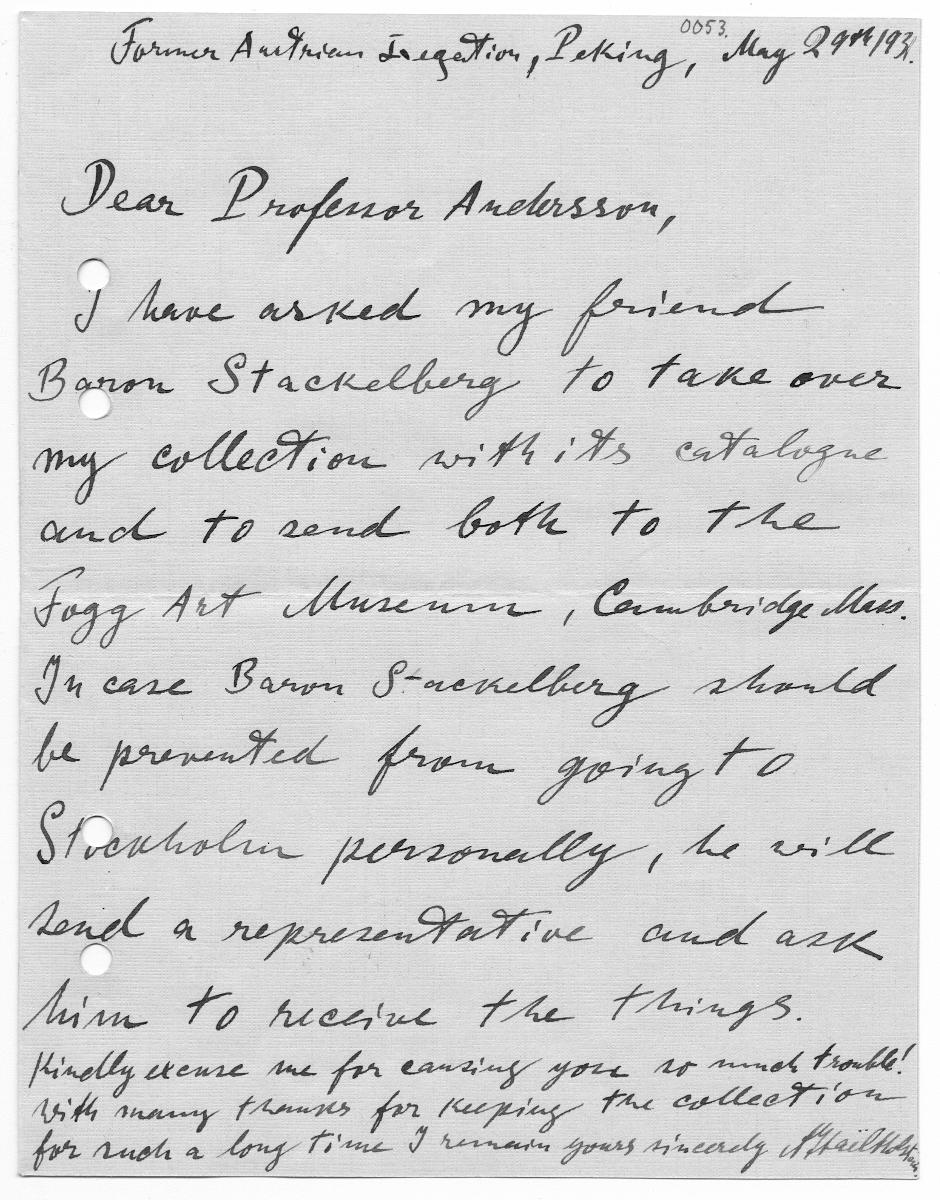 0053.
Former Austrian Legation, Peking, May 29th 193
Dear Professor Andersson,
I have asked my friend
Baron Stackelberg to take over
my collection with its catalogue
and to send both to the
Fogg Art Museum, Cambridge Mass.
In case Baron Stackelberg should
be prevented from going to
Stockholm personally, he will
send a representative and ask
him to receive the things.
Kindly excuse me for causing you so much trouble!
With many thanks for keeping the collection
for such a long time I remain yours sincerely AStaël Holstein.